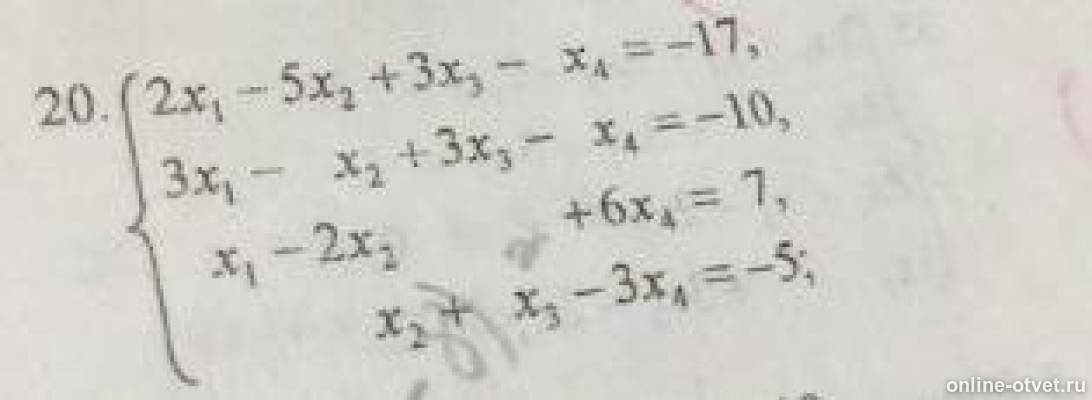 20. { 2x₁ − 5x₂ + 3x₃ − x₄ = −17,
3x₁ − x₂ + 3x₃ − x₄ = −10,
x₁ − 2x₂ + 6x₄ = 7,
x₂ + x₃ − 3x₄ = −5;
online-otvet.ru